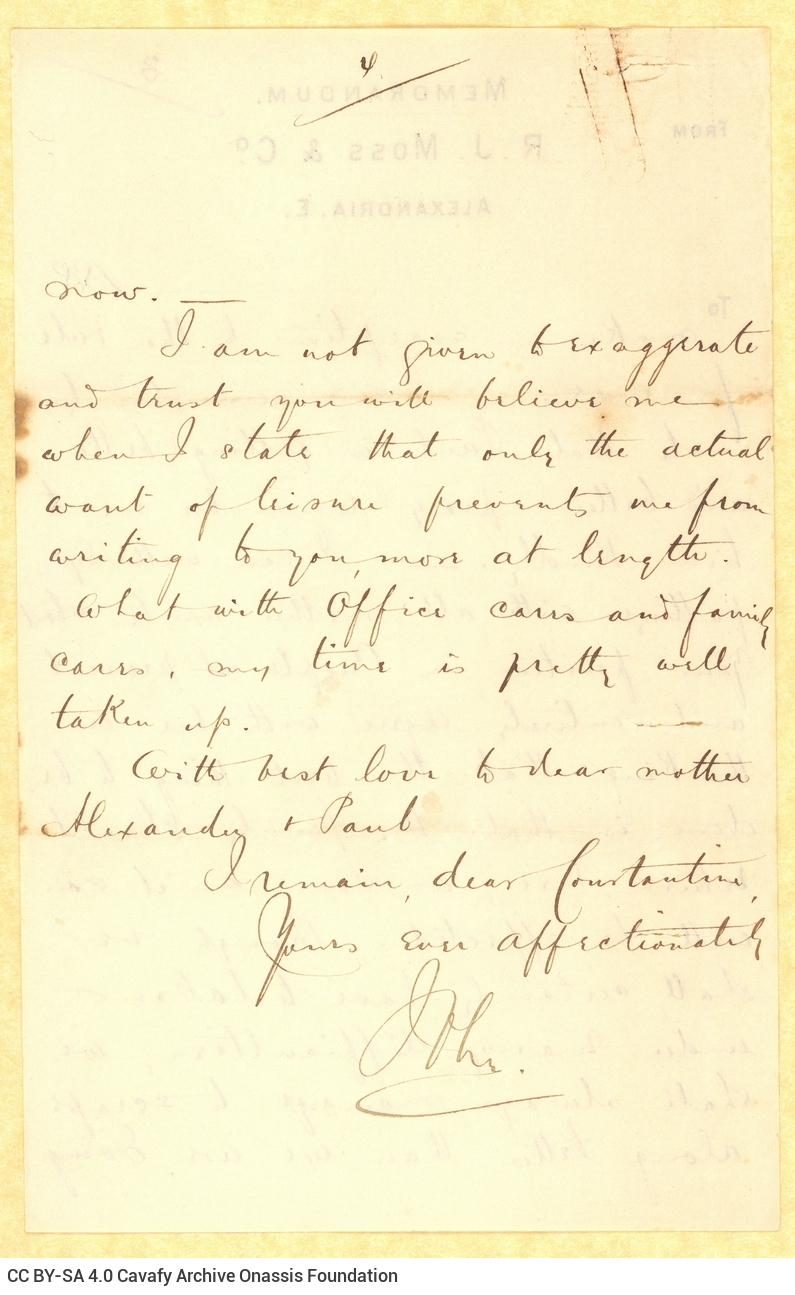 4
MEMORANDUM.
FROM
R. J. MOSS & Co
ALEXANDRIA. E.
To
now. —
I am not given to exaggerate
and trust you will believe me
when I state that only the actual
want of leisure prevents me from
writing to you more at length.
What with Office cares and family
cares, my time is pretty well
taken up. —
With best love to dear mother
Alexander & Paul
I remain, dear Constantine,
Yours ever affectionately
John.
CC BY-SA 4.0 Cavafy Archive Onassis Foundation